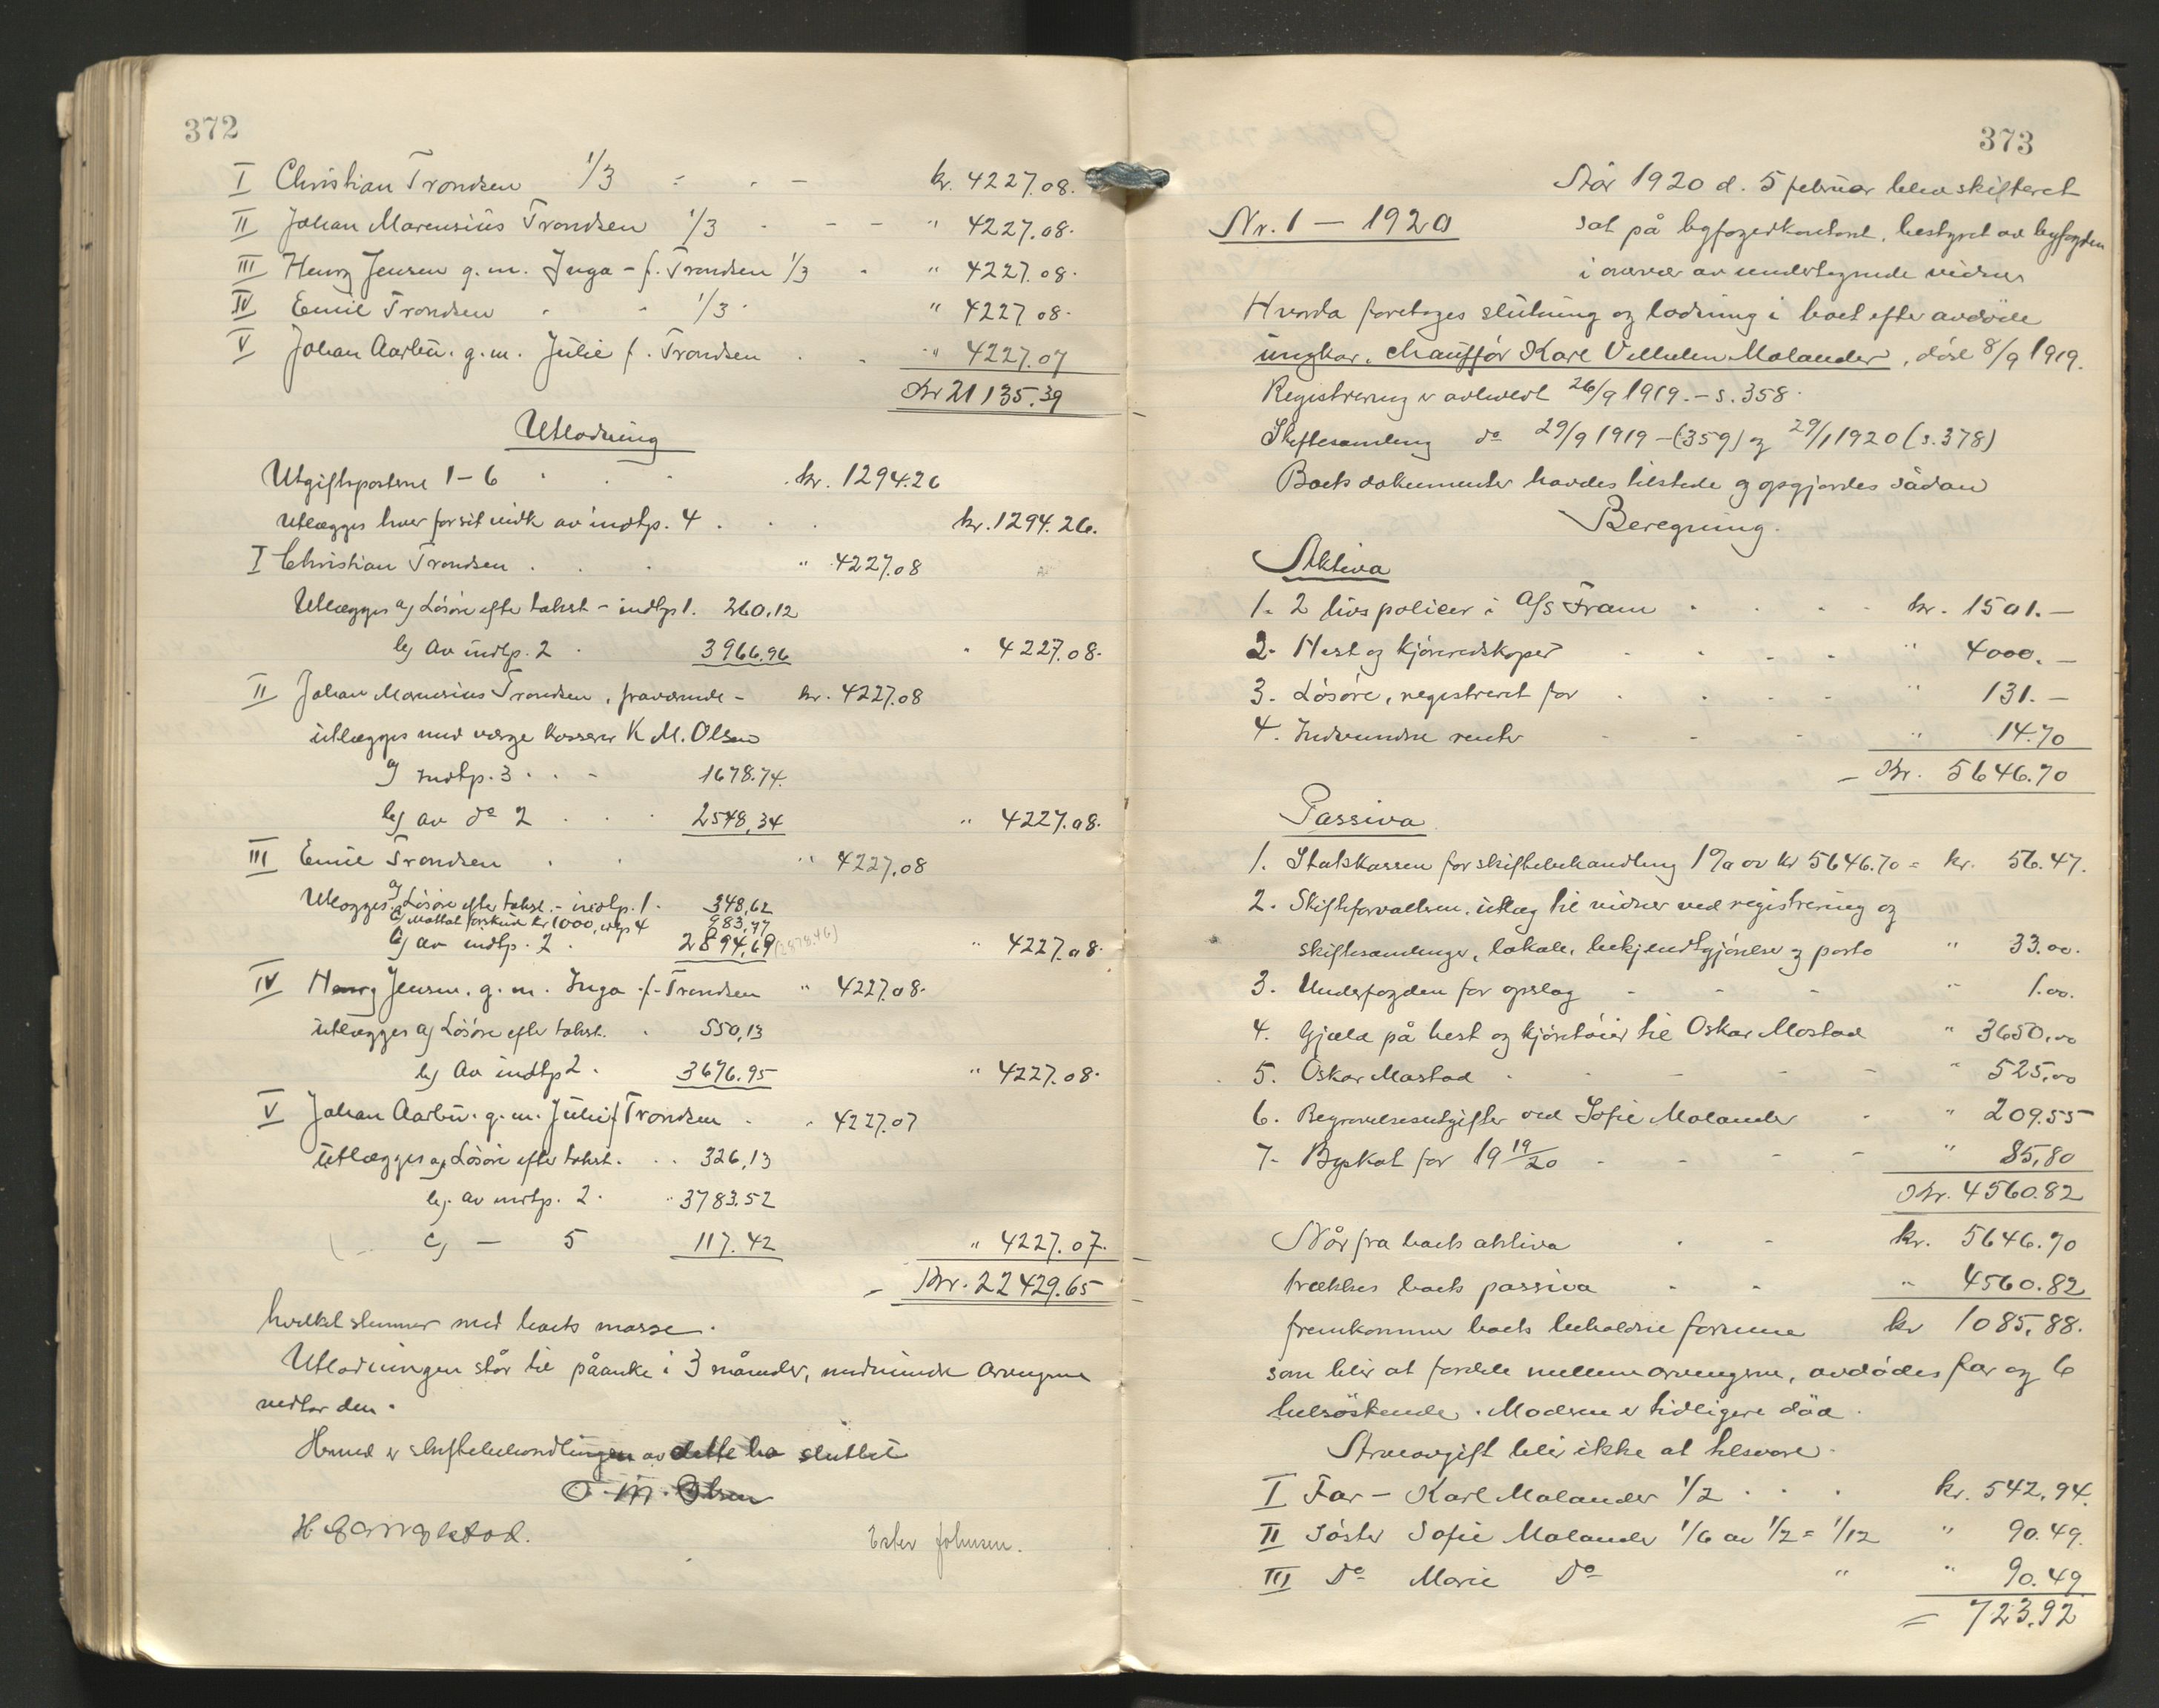 372
I Christian Trondsen 1/3 = . - kr. 4227.08.
II Johan Marensius Trondsen 1/3 . - - " 4227.08.
III Henry Jensen g.m. Inga - f. Trondsen 1/3 . " 4227.08.
IV Emil Trondsen . - 1/3 . " 4227.08.
V Johan Aarbu. g.m. Julie f. Trondsen . . " 4227.07
Kr 21135.39
Utlodning
Utgiftsposterne 1-6 . . . kr. 1294.26
Utlægges hver for sit vedk av indtp. 4 . . . kr. 1294.26.
I Christian Trondsen . . . " 4227.08
Utlægges a) Løsøre efter takst - indtp 1. 260.12
b) Av indtp. 2 . 3966.96 " 4227.08.
II Johan Marensius Trondsen, fraværende - kr. 4227.08
utlægges ved værge kasserer K M. Olsen
a) Indtp. 3 . . - 1678.74.
b) av do 2 . . . 2548,34 " 4227.08.
III Emil Trondsen . . " 4227,08
Utlægges a) Løsøre efter takst. - indtp. 1. 348,62
c) Mottat forskud kr 1000, utgp 4 983,77
b) av indtp. 2 . 2894,69 (2878.46) " 4227.08.
IV Henry Jensen. g.m. Inga f. Trondsen " 4227.08.
utlægges a) Løsøre efter takst. . 550,13
b) Av indtp 2 . 3676.95 " 4227.08.
V Johan Aarbu. g.m. Julie f Trondsen . . 4227.07
Utlægges a) Løsøre efter takst. . . 326,13
b) av indtp. 2 . " 3783.52
c) - 5 117.42 " 4227.07.
Kr. 22429.65
hvilket stemmer med boets masse.
Utlodningen står til påanke i 3 måneder, medmindre arvingerne
vedtar den.
Hermed er skiftebehandlingen av dette bo sluttet
O. M. Olsen
Ester Johnsen.
373
År 1920 d. 5 februar blev skifteret
Nr. 1 - 1920 sat på byfogedkontoret, bestyret av byfogden
i overvær av undertegnede vidner
Hvorda foretoges slutning og lodning i boet efter avdøde
ungkar, chauffør Karl Vilhelm Malander, død 8/9 1919.
Registrering er avholdt 26/9 1919. - s. 358.
Skiftesamling do 29/9 1919 - (359) og 29/1 1920 (s. 378)
Boets dokumenter havdes tilstede og opgjordes sådan
Beregning.
Aktiva
1. 2 livspoliser i A/S Fram . . . . kr. 1501.-
2. Hest og kjøreredskaper - . - . " 4000.-
3. Løsøre, registreret for . . . - " 131.-
4. Indvundne renter - - - " 14.70
Kr. 5646.70
Passiva
1. Statskassen for skiftebehandling 1% av kr 5646.70 = kr. 56.47.
2. Skifteforvalteren, utlæg til vidner ved registrering og
skiftesamlinger, lokale, bekjendtgjørelse og porto " 33.00.
3. Underfogden for opslag - - - " 1.00.
4. Gjæld på hest og kjøretøier til Oskar Mostad " 3650,00
5. Oskar Mostad . - - - - " 525,00
6. Begravelsesutgifter ved Sofie Malander . " 209.55
7. Byskat for 19 19/20 - - - - " 85,80
Kr. 4560.82
Når fra boets aktiva . - kr. 5646.70
trækkes boets passiva . - " 4560.82
fremkommer boets beholdne formue kr 1085,88.
som blir at fordele mellem arvingerne, avdødes far og 6
helsøskende. Moderen er tidligere død.
Arveavgift blir ikke at tilsvare.
I Far - Karl Malander 1/2 . . . kr. 542,94.
II Søster Sofie Malander 1/6 av 1/2 = 1/12 " 90.49.
III Do Marie Do " " 90.49
= 723.92